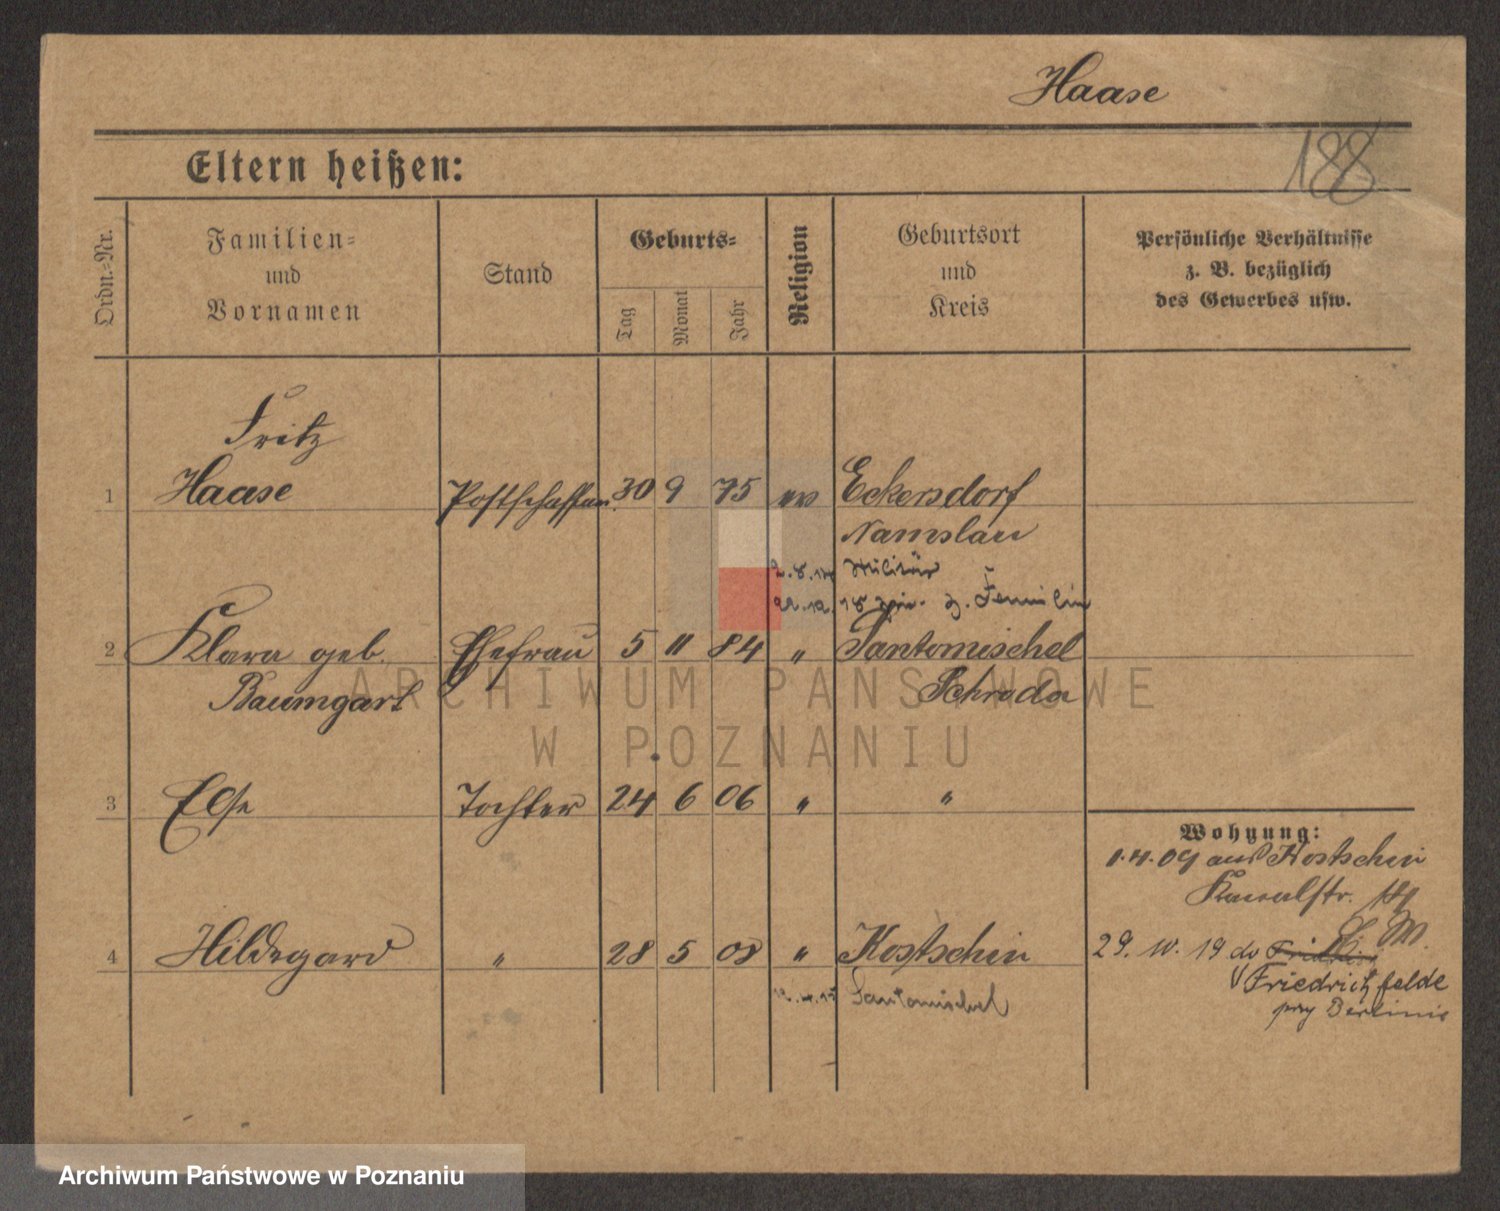 Haase
188
Eltern heißen:
Ordn.-Nr.
Familien-
und
Vornamen
Stand
Geburts-
Tag
Monat
Jahr
Religion
Geburtsort
und
Kreis
Persönliche Verhältnisse
z. B. bezüglich
des Gewerbes usw.
Fritz
1 Haase Postschaffn. 30 9 75 ev Eckersdorf
Namslau
2.8.14 Militär
18 z. Familie
2 Klara geb. Ehefrau 5 11 84 " Santomischel
Baumgart Schroda
3 Else Tochter 24 6 06 " "
Wohnung:
1.4.09 aus Kostschin
4 Hildegard " 28 5 08 " Kostschin
29. 10. 19 do
Santomischel
Friedrichsfelde
przy Berlinie
ARCHIWUM PAŃSTWOWE
W POZNANIU
Archiwum Państwowe w Poznaniu